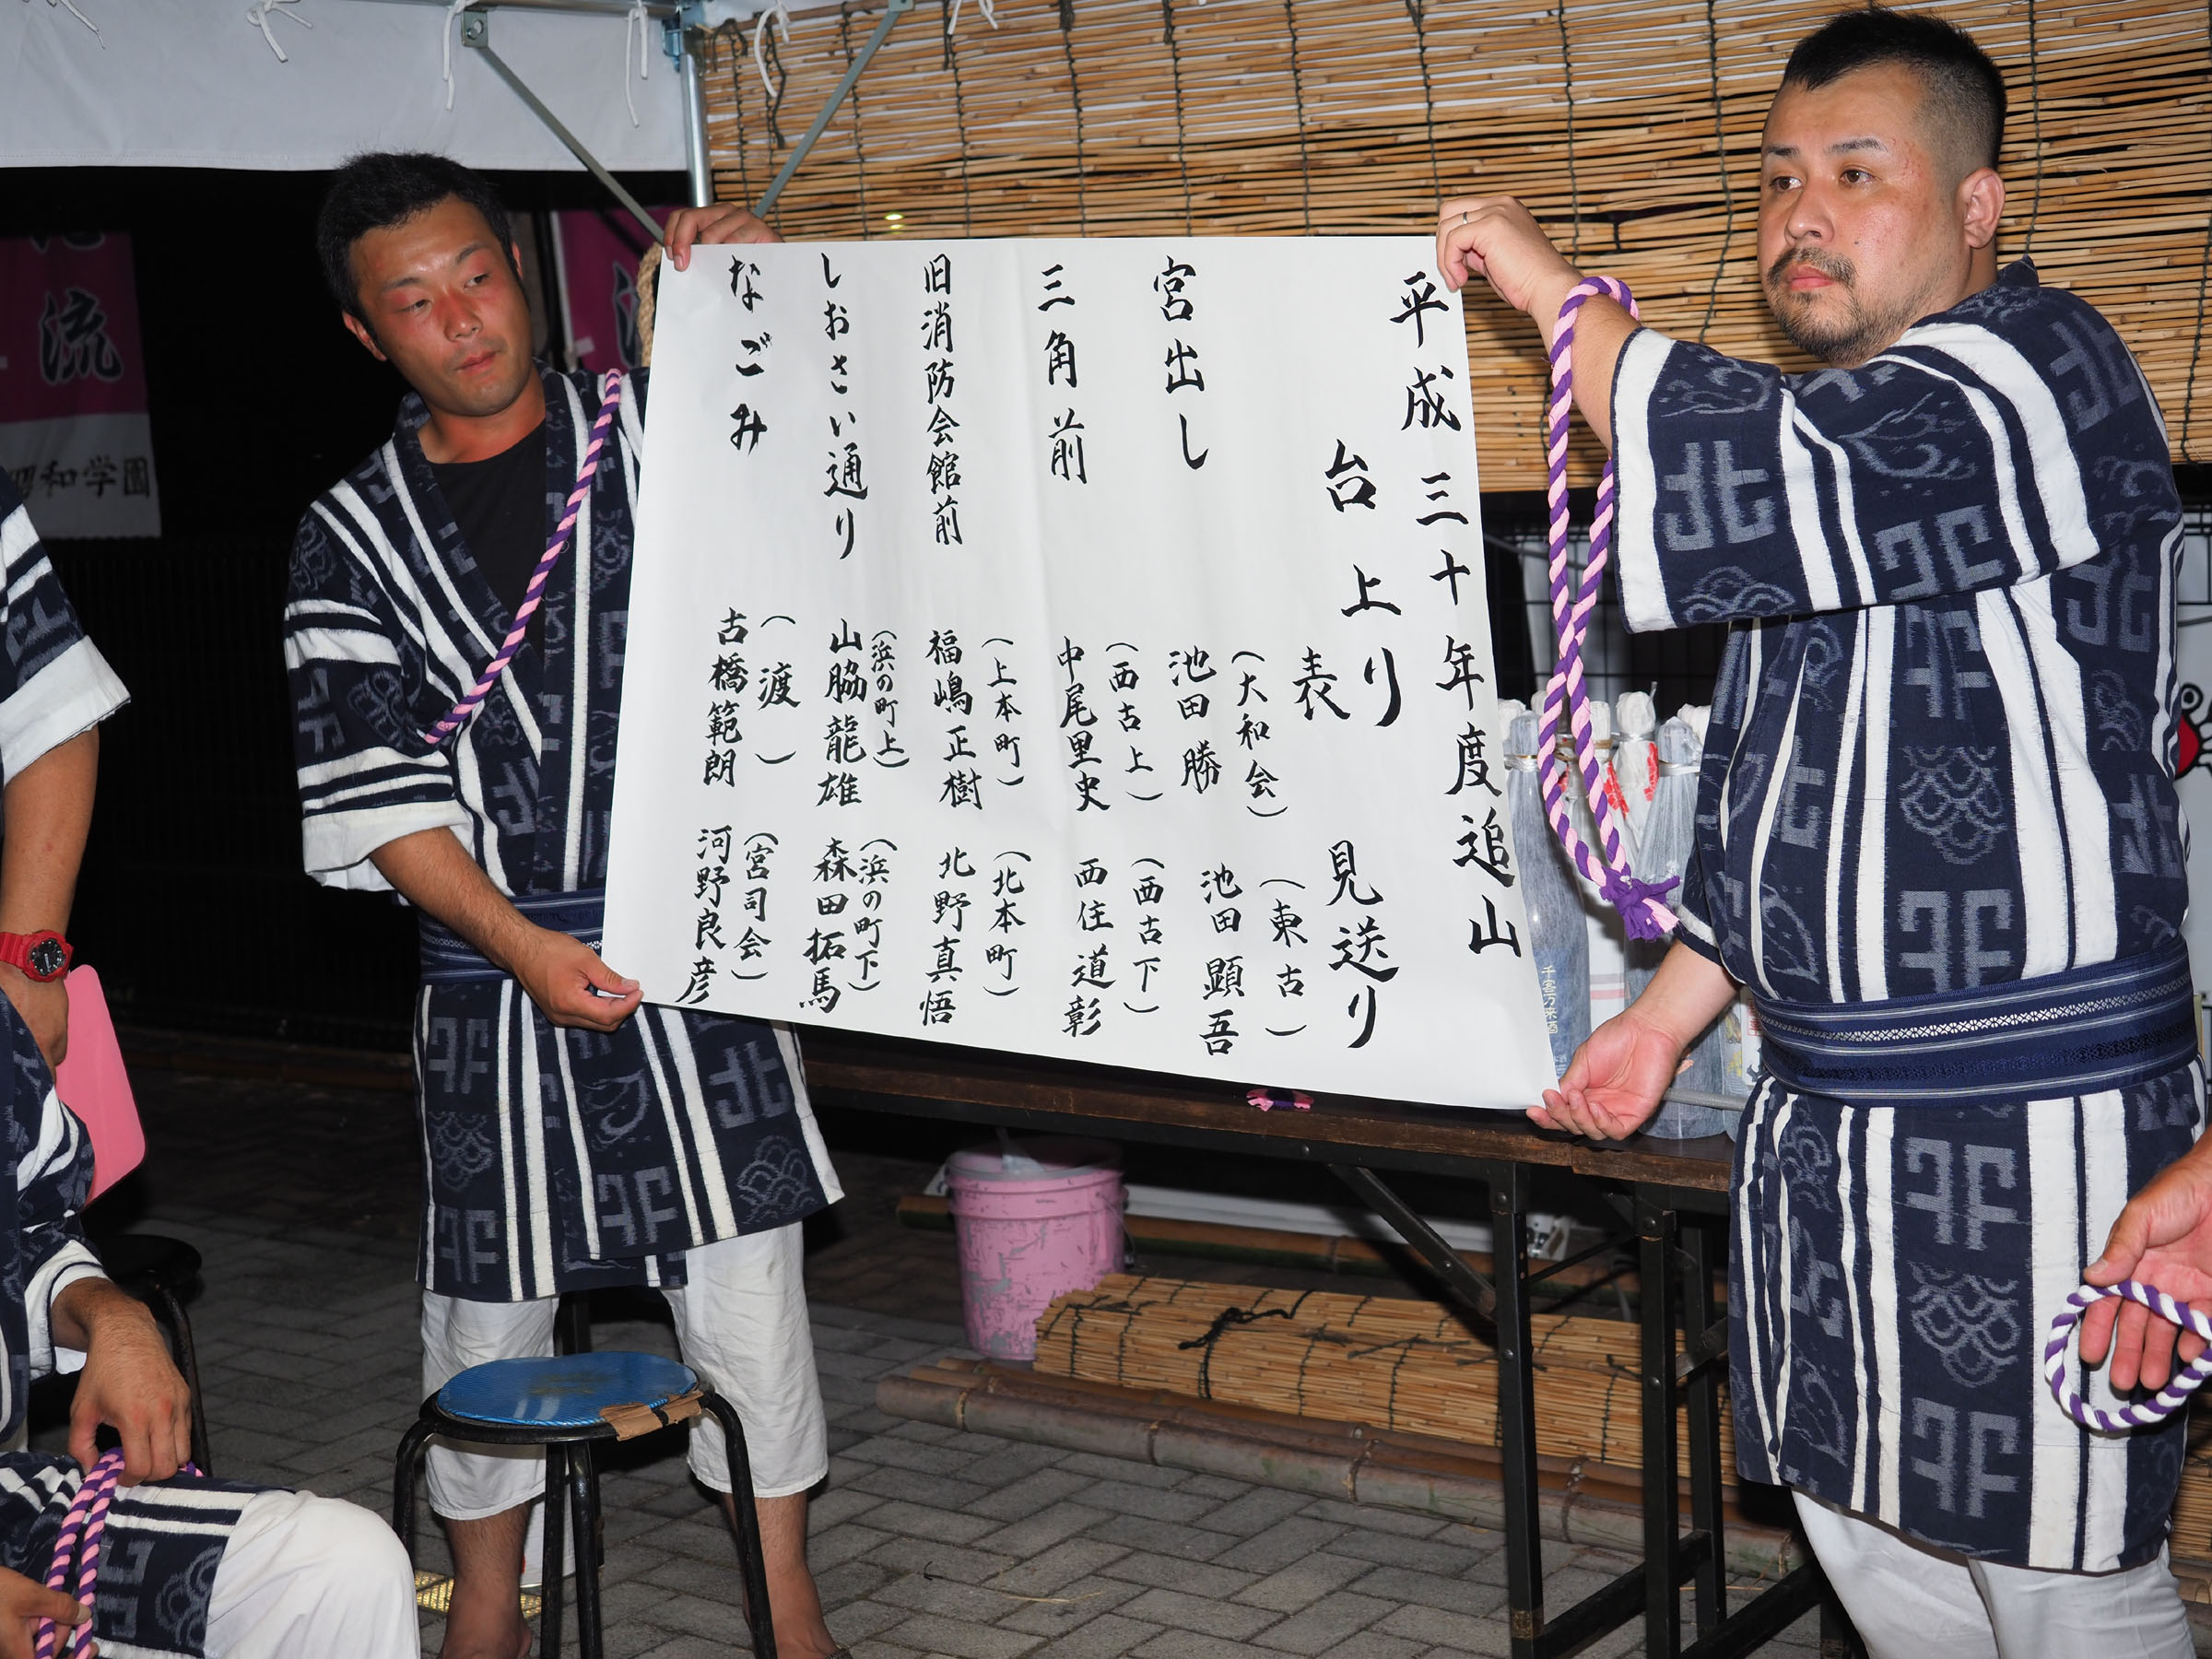 平成三十年度追山
台上り
表 見送り
宮出し (大和会) 池田勝 (東古) 池田顕吾
三角前 (西古上) 中尾里史 (西古下) 西住道彰
旧消防会館前 (上本町) 福嶋正樹 (北本町) 北野真悟
しおさい通り (浜の町上) 山脇龍雄 (浜の町下) 森田拓馬
なごみ (渡) 古橋範朗 (宮司会) 河野良彦
流
和学園
千客万来酒